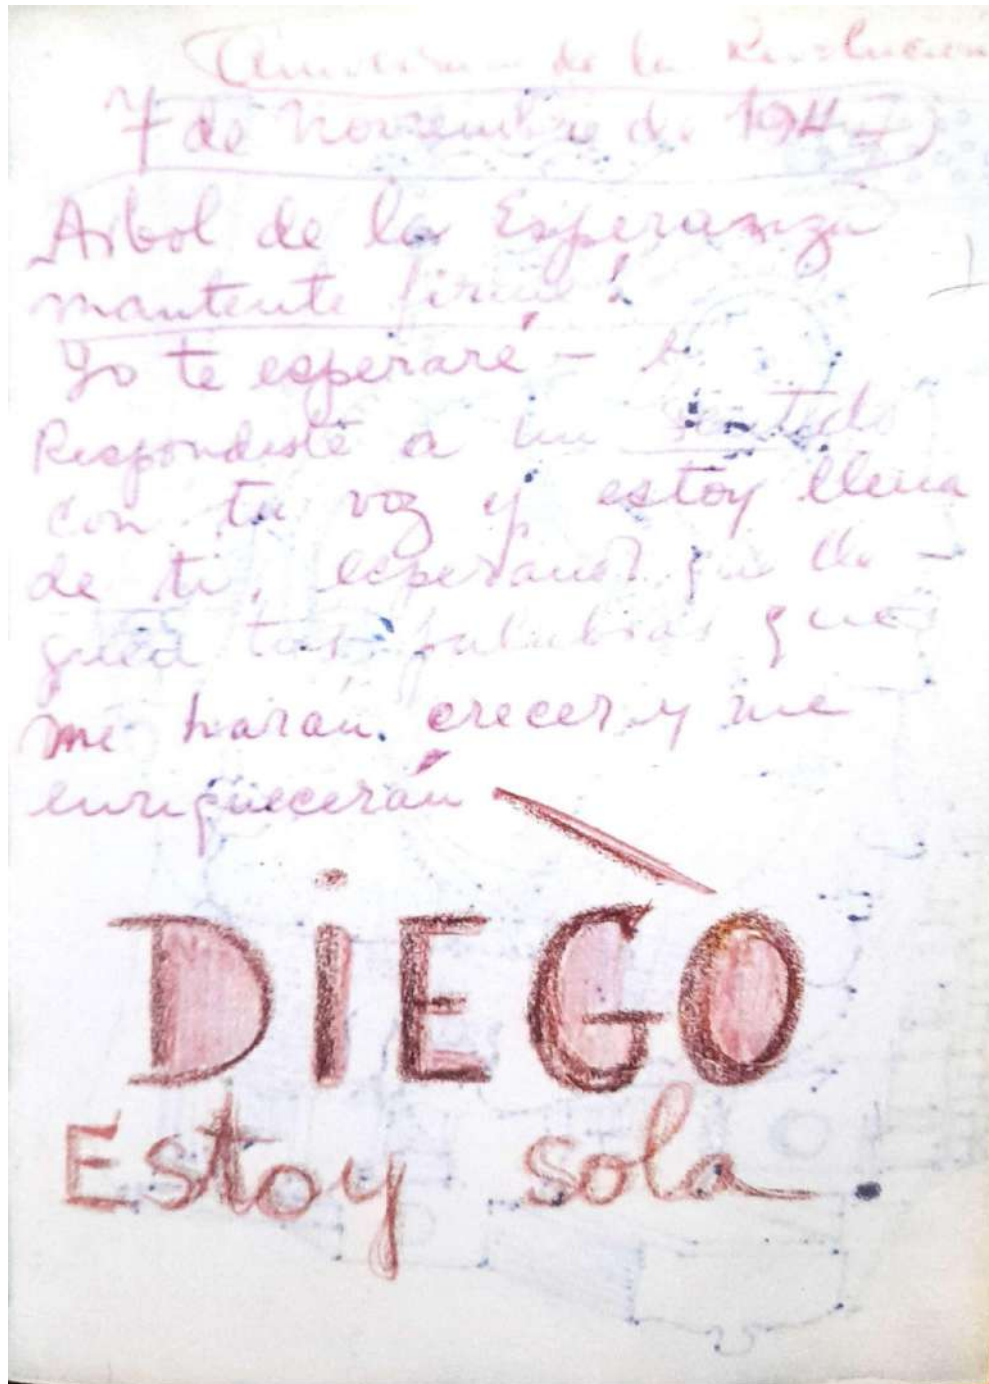 de la Revolucion
7 de Noviembre de 1947
Arbol de la Esperanza
mantente firme!
Yo te esperaré – b.
Respondiste a un sentido
con tu voz y estoy llena
de ti, esperando que lle-
guen tus palabras que
me harán crecer y me
enriquecerán
DiEGO
Estoy sola.